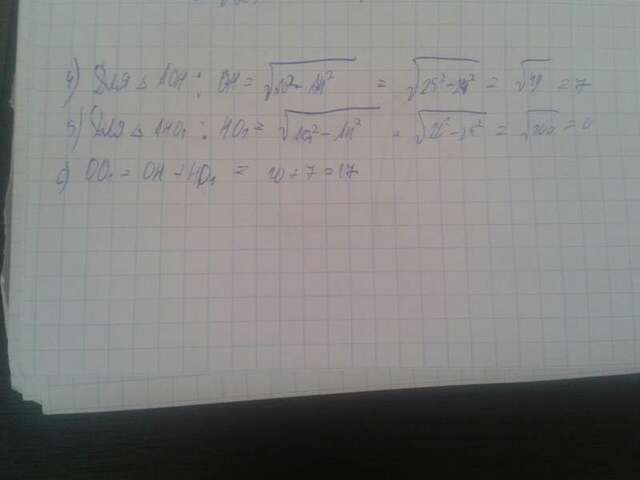 4) Для △ AOH: OH = √AO² - AH² = √25² - 24² = √49 = 7
5) Для △ AHO₁: HO₁ = √AO₁² - AH² = √26² - 24² = √100 =
6) OO₁ = OH + HO₁ = 10 + 7 = 17